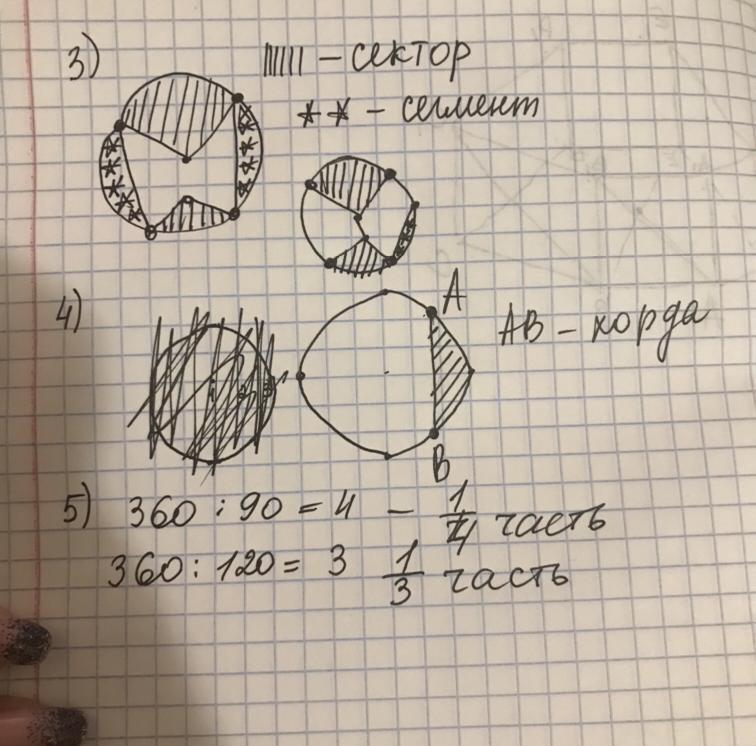 3) – сектор
** – сегмент
4) A
AB – хорда
B
5) 360 : 90 = 4 – 1/4 часть
360 : 120 = 3 1/3 часть